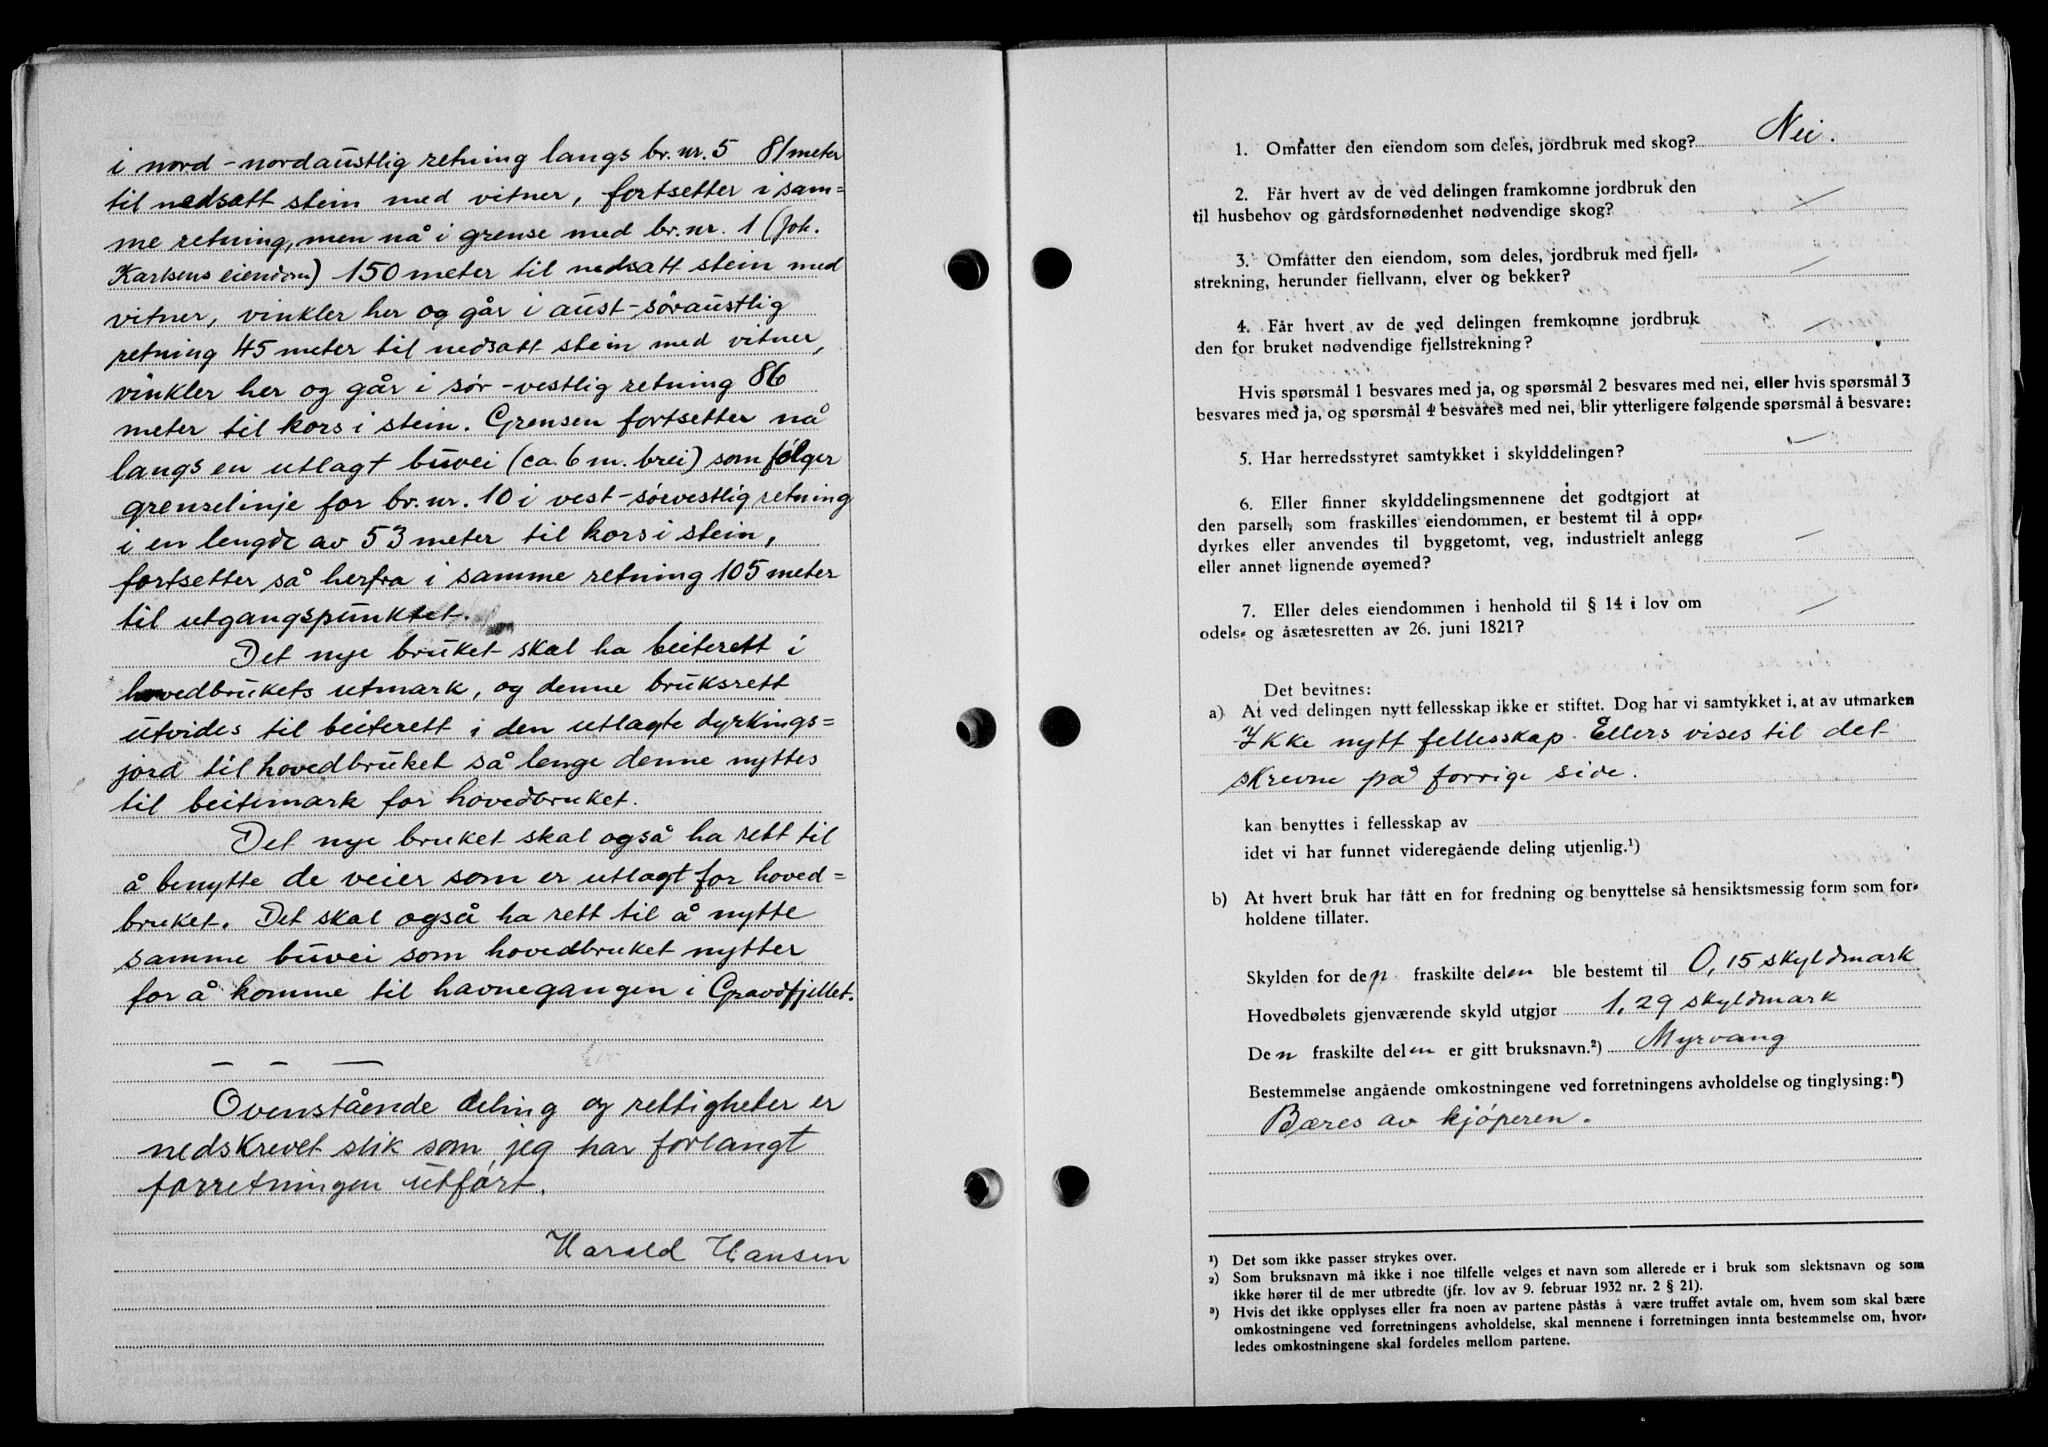 i nord-nordaustlig retning langs br.nr. 5 81 meter
til nedsatt stein med vitner, fortsetter i sam=
me retning, men nå i grense med br.nr. 1 (Joh.
Karlsens eiendom) 150 meter til nedsatt stein med
vitner, vinkler her og går i aust-søraustlig
retning 45 meter til nedsatt stein med vitner,
vinkler her og går i sør-vestlig retning 86
meter til kors i stein. Grensen fortsetter nå
langs en utlagt buvei (ca. 6 m. brei) som følger
grenselinje for br.nr. 10 i vest-sørvestlig retning
i en lengde av 53 meter til kors i stein,
fortsetter så herfra i samme retning 105 meter
til utgangspunktet.
Det nye bruket skal ha beiterett i
hovedbrukets utmark, og denne bruksrett
utvides til beiterett i den utlagte dyrkings=
jord til hovedbruket så lenge denne nyttes
til beitemark for hovedbruket.
Det nye bruket skal også ha rett til
å benytte de veier som er utlagt for hoved=
bruket. Det skal også ha rett til å nytte
samme buvei som hovedbruket nytter
for å komme til havnegangen i Gravdfjellet.
— — —
Ovenstående deling og rettigheter er
nedskrevet slik som jeg har forlangt
forretningen utført.
Harald Hansen
1. Omfatter den eiendom som deles, jordbruk med skog? Nei.
2. Får hvert av de ved delingen framkomne jordbruk den
til husbehov og gårdsfornødenhet nødvendige skog? —
3. Omfåtter den eiendom, som deles, jordbruk med fjell-
strekning, herunder fiellvann, elver og bekker? —
4. Får hvert av de ved delingen fremkomne jordbruk
den for bruket nødvendige fjellstrekning? —
Hvis spørsmål 1 besvares med ja, og spørsmål 2 besvares med nei, eller hvis spørsmål 3
besvares med ja, og spørsmål 4 besvares med nei, blir ytterligere følgende spørsmål å besvare:
5. Har herredsstyret samtykket i skylddelingen? —
6. Eller finner skylddelingsmennene det godtgjort at
den parsell, som fraskilles eiendommen, er bestemt til å opp-
dyrkes eller anvendes til byggetomt, veg, industrielt anlegg
eller annet lignende øyemed? —
7. Eller deles eiendommen i henhold til § 14 i lov om
odels- og åsætesretten av 26. juni 1821? —
Det bevitnes:
a) At ved delingen nytt fellesskap ikke er stiftet. Dog har vi samtykket i, at av utmarken
Ikke nytt fellesskap. Ellers vises til det
skrevne på forrige side.
kan benyttes i fellesskap av
idet vi har funnet videregående deling utjenlig.¹)
b) At hvert bruk har fått en for fredning og benyttelse så hensiktsmessig form som for-
holdene tillater.
Skylden for den fraskilte delen ble bestemt til 0,15 skyldmark
Hovedbølets gjenværende skyld utgjør 1,29 skyldmark
Den fraskilte delen er gitt bruksnavn.²) Myrvang
Bestemmelse angående omkostningene ved forretningens avholdelse og tinglysing:³)
Bæres av kjøperen.
¹) Det som ikke passer strykes over.
²) Som bruksnavn må ikke i noe tilfelle velges et navn som allerede er i bruk som slektsnavn og som
ikke hører til de mer utbredte (jfr. lov av 9. februar 1932 nr. 2 § 21).
³) Hvis det ikke opplyses eller fra noen av partene påstås å være truffet avtale om, hvem som skal bære
omkostningene ved forretningens avholdelse, skal mennene i forretningen innta bestemmelse om, hvor-
ledes omkostningene skal fordeles mellom partene.